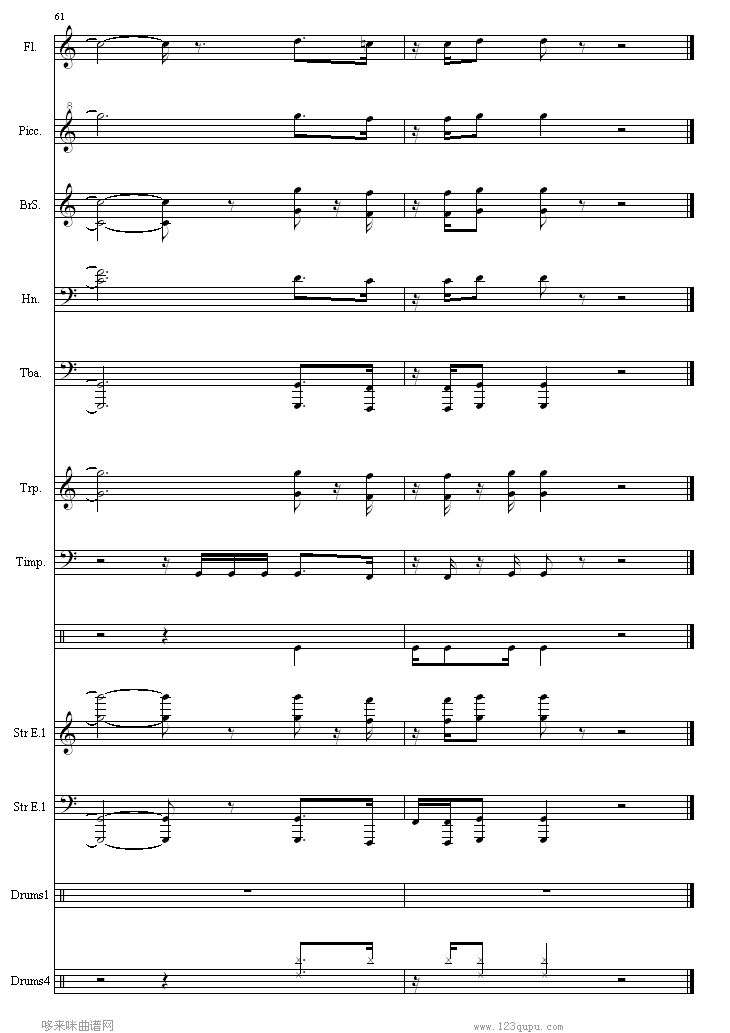 61
Fl.
8
Picc.
BrS.
Hn.
Tba.
Trp.
Timp.
Str E.1
Str E.1
Drums1
Drums4
哆来咪曲谱网
www.123qupu.com